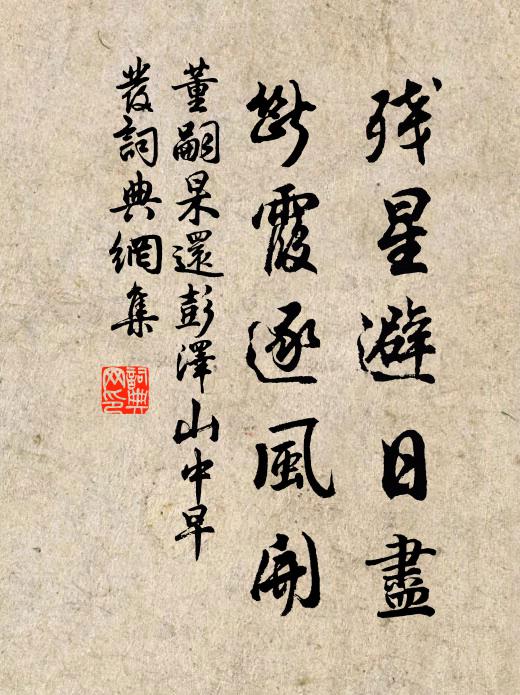 残星避日盡
斷霞逐風開
董嗣杲還彭澤山中早
發詞典網集
詞典
网印